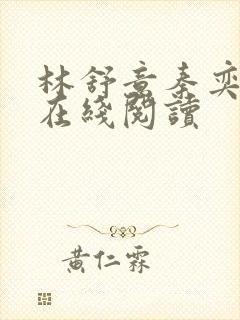 林舒意秦奕
在綫閱讀
黃仁霖